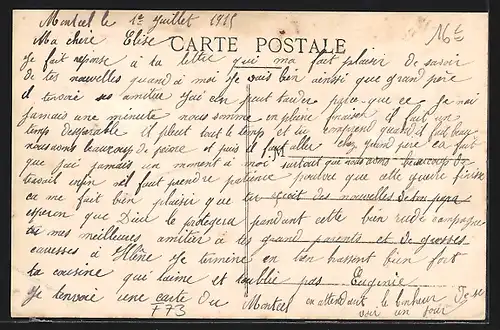 Montcel le 1e Juillet 1915
Ma chère Elise CARTE POSTALE
Je fait réponse à la lettre qui ma fait plaisir de savoir
de tes nouvelles quand à moi je vais bien ainssi que grand père
il tenvoie ses amitier Jai en peut tarder parce que ce Je nai
jamais une minute nous somme en pleine finaison il fait un
temps desporable il pleut tout le temps et tu comprend quand il fait beau
nous avons beaucoup de foire et puis il faut aller chez grand père ça fait
que jai jamais un moment à moi surtout que nous avons beaucoup de
travail enfin il faut prendre patience pourvue que cette guerre finisse
ca me fait bien plaisir que tu reçoit des nouvelles de ton papa
esperon que Dieu le protegera pendant cette bien rude campagne
mes meilleures amitier à tes grand parents et de grosses
caresses à Hélène Je termine en bien bien fort
ta cousine qui taime et toublie pas Eugénie
Je tenvoie une carte du Montcel en attendant le bonheur De se
voir un jour
F73